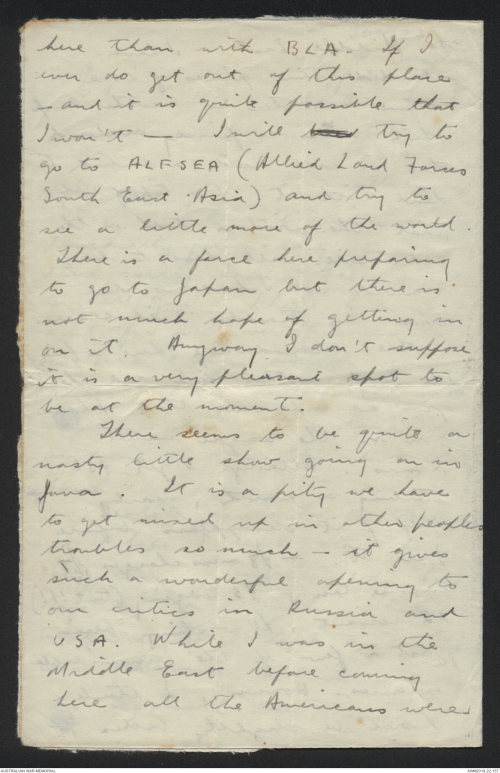 here than with BLA. If I
ever do get out of this place
- and it is quite possible that
I won't — I will try to
go to ALFSEA (Allied Land Forces
South East Asia) and try to
see a little more of the world.
There is a force here preparing
to go to Japan but there is
not much hope of getting in
on it. Anyway I don't suppose
it is a very pleasant spot to
be at the moment.
There seems to be quite a
nasty little show going on in
Java. It is a pity we have
to get mixed up in other peoples
troubles so much - it gives
such a wonderful opening to
our critics in Russia and
USA. While I was in the
Middle East before coming
here all the Americans were
AUSTRALIAN WAR MEMORIAL